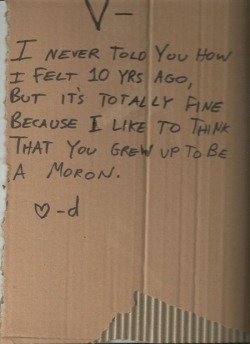 V-
I NEVER TOLD YOU HOW
I FELT 10 YRS AGO,
BUT IT'S TOTALLY FINE
BECAUSE I LIKE TO THINK
THAT YOU GREW UP TO BE
A MORON.
♡-d